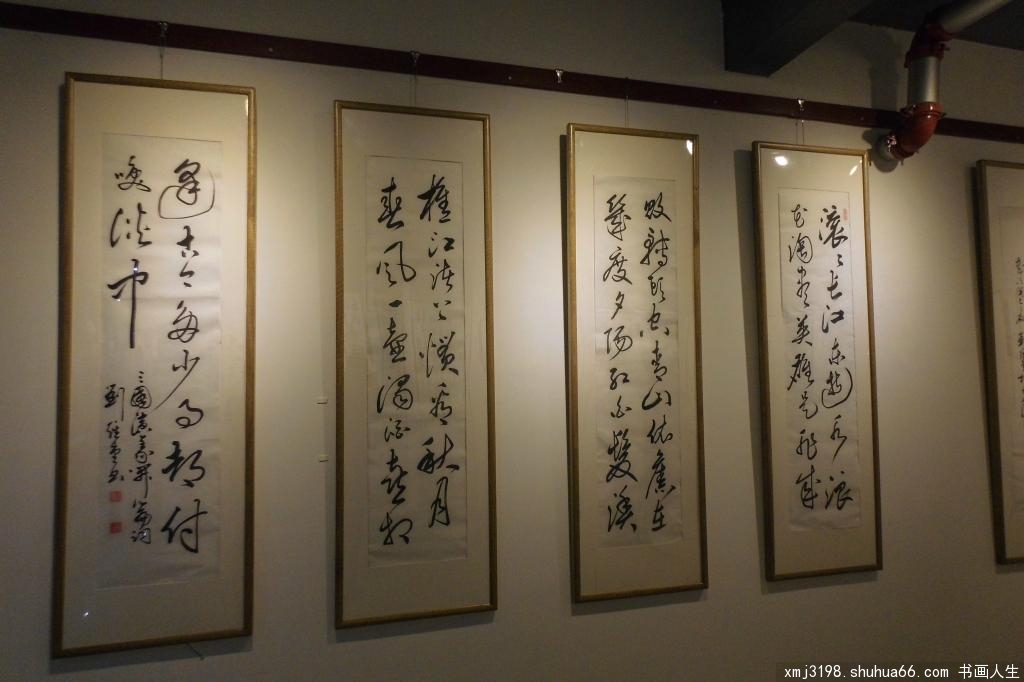 滚滚长江东逝水浪
花淘尽英雄是非成
败转头空青山依舊在
幾度夕阳红白髮渔
樵江渚上惯看秋月
春风一壶濁酒喜相
逢古今多少事都付
笑谈中
三國演义开篇词
xmj3198.shuhua66.com 书画人生